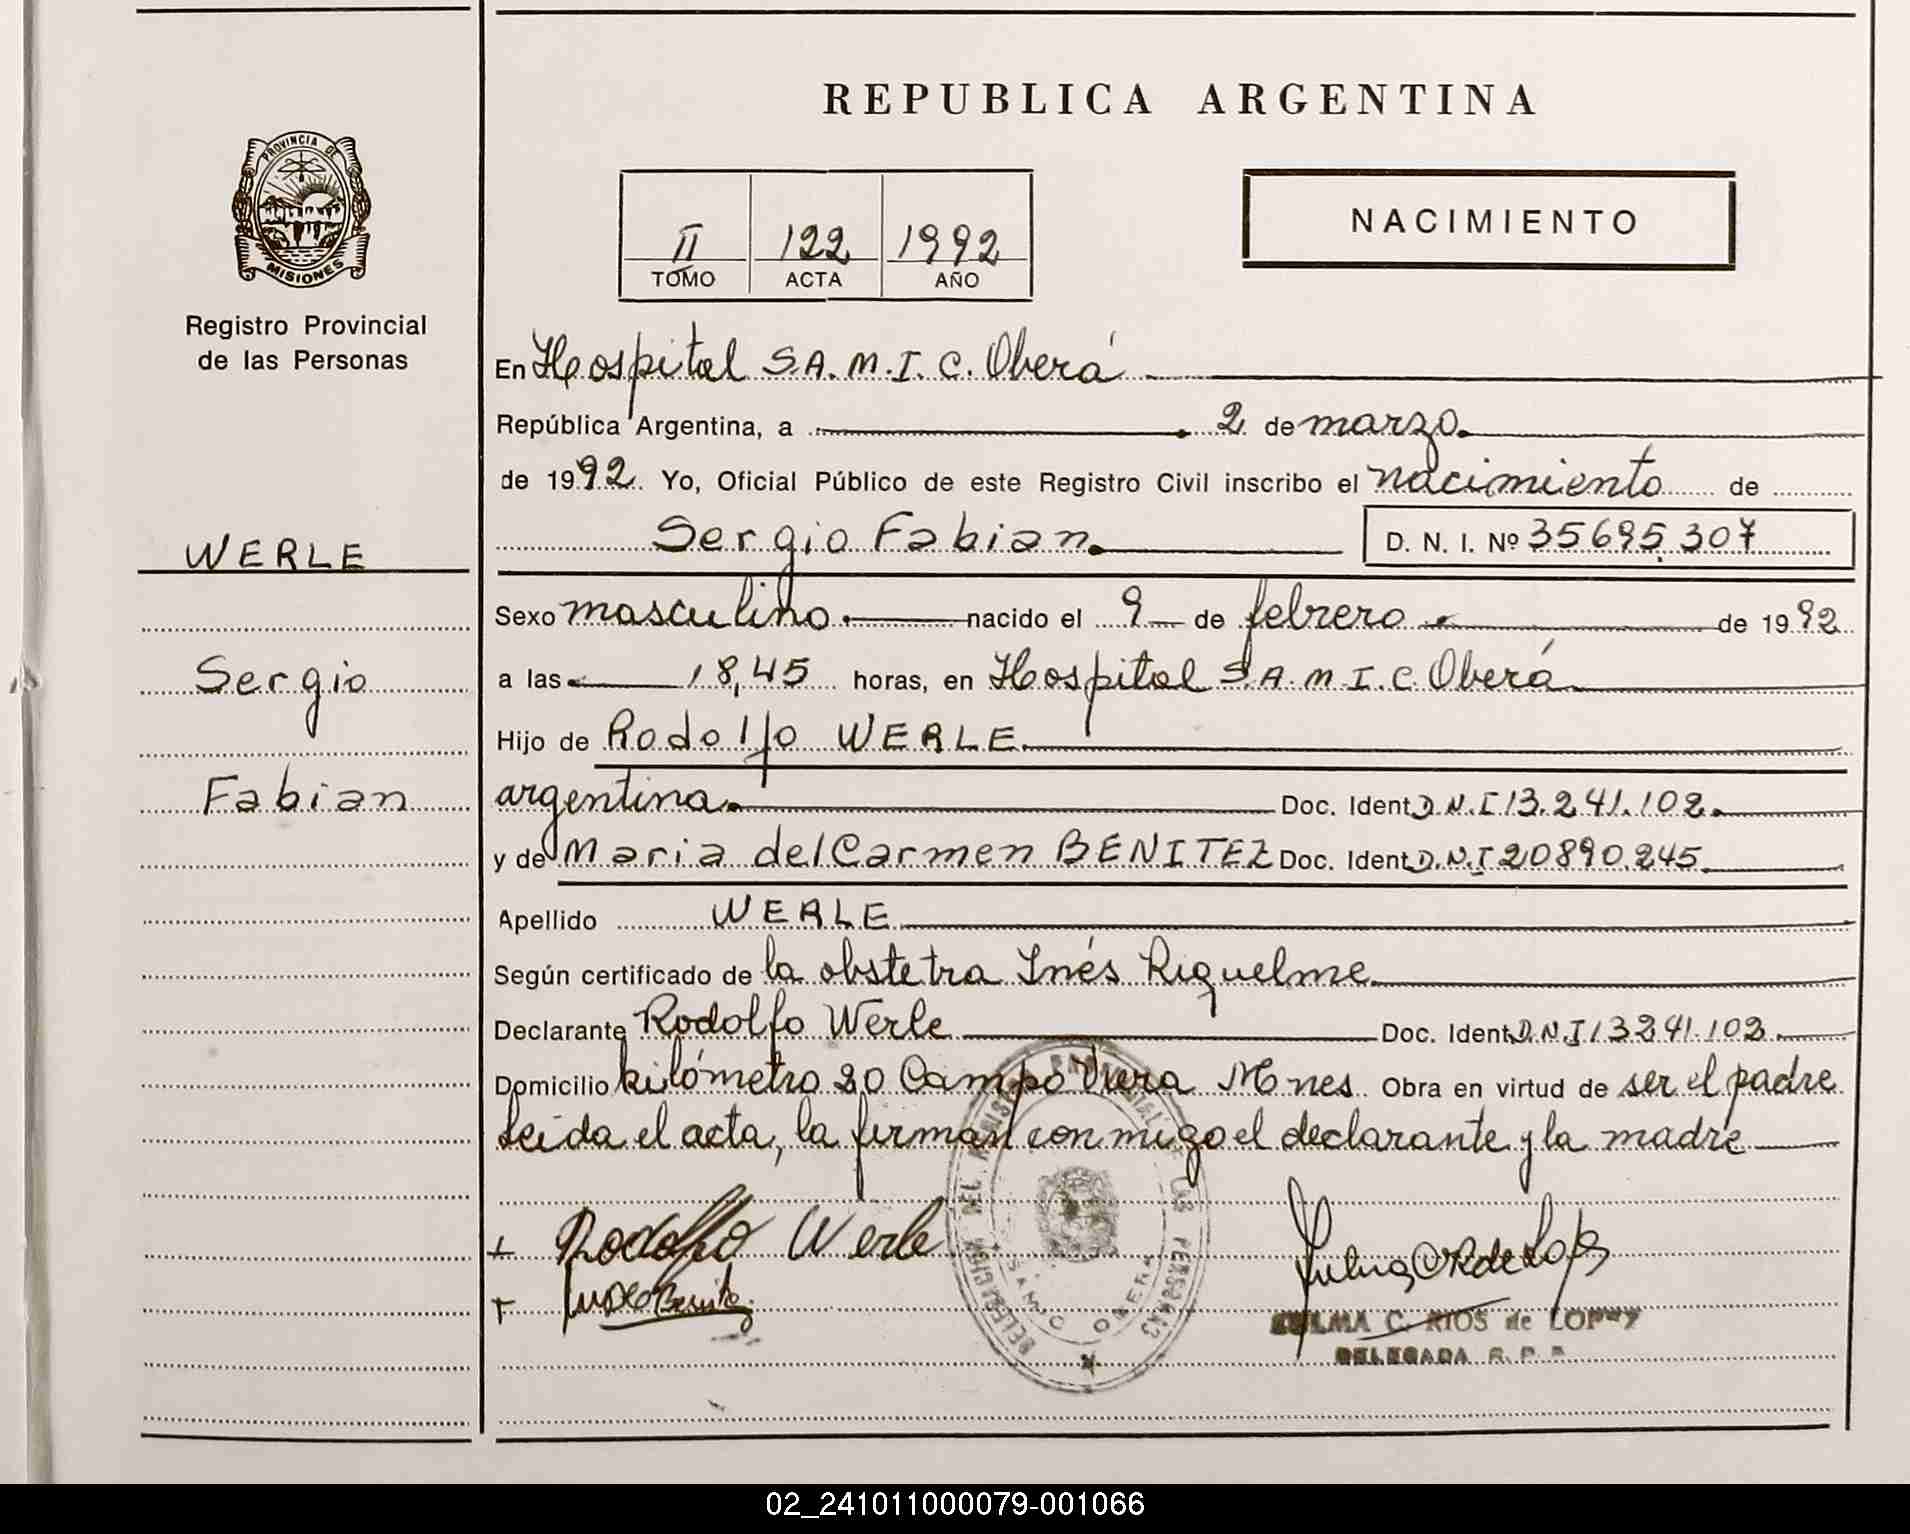 REPUBLICA ARGENTINA
PROVINCIA DE
MISIONES
Registro Provincial
de las Personas
WERLE
Sergio
Fabian
II 122 1992
TOMO ACTA AÑO
NACIMIENTO
En Hospital S.A.M.I.C. Oberá
República Argentina, a 2 de marzo
de 1992. Yo, Oficial Público de este Registro Civil inscribo el nacimiento de
Sergio Fabian D. N. I. Nº 35695.307
Sexo masculino nacido el 9 de febrero de 1992
a las 18,45 horas, en Hospital S.A.M.I.C. Oberá
Hijo de Rodolfo WERLE
argentina Doc. Ident. D.N.I 13.241.102
y de Maria del Carmen BENITEZ Doc. Ident. D.N.I 20890.245
Apellido WERLE
Según certificado de la obstetra Inés Riquelme
Declarante Rodolfo Werle Doc. Ident. D.N.I 13241.102
Domicilio kilómetro 20 Campo Viera Mnes. Obra en virtud de ser el padre
Leida el acta, la firman conmigo el declarante y la madre
Rodolfo Werle
Benitez
ZULMA C. RIOS de LOPEZ
DELEGADA R. P. P.
02_241011000079-001066